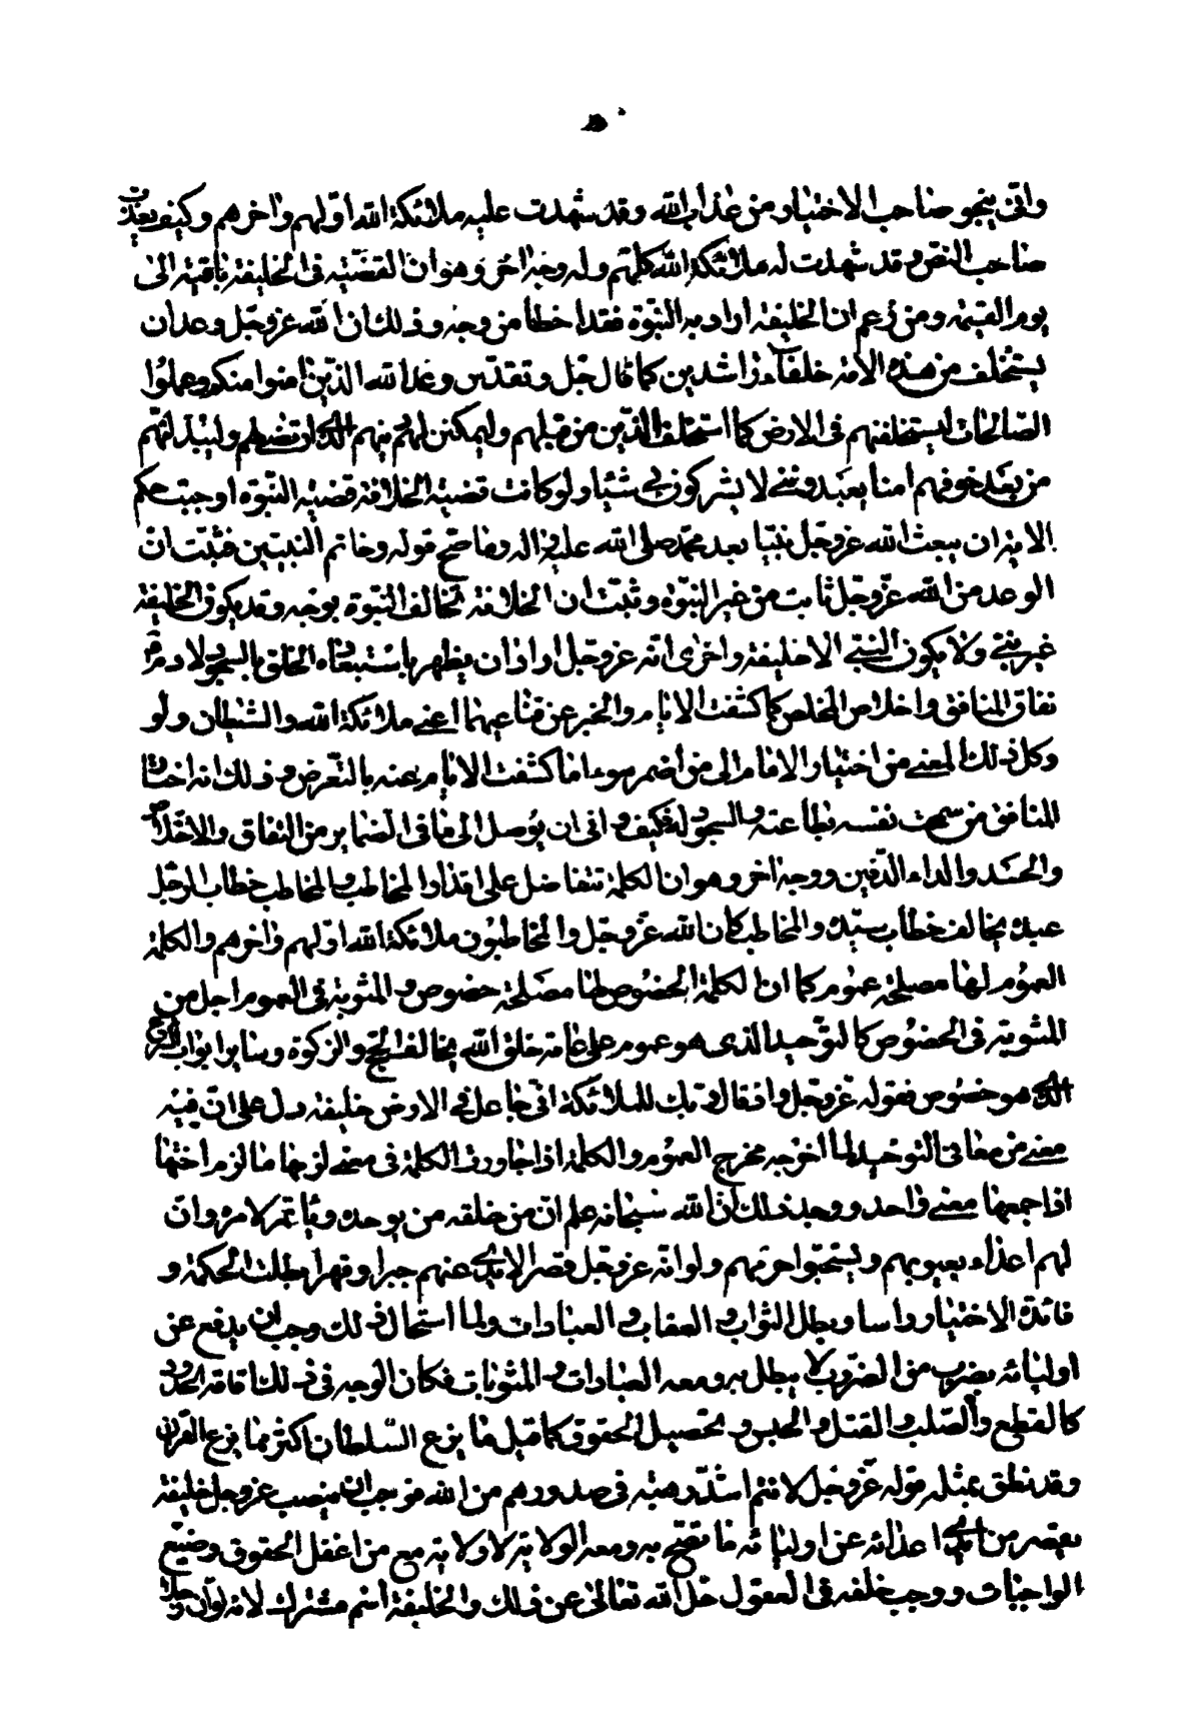 وانّى ينجو صاحب الاختيار من عذاب الله وقد شهدت عليه ملائكة الله اوّلهم واخرهم وكيف يعذّب
صاحب النص وقد شهدت له ملائكة الله كلّهم وله وجه اخر وهو ان القضيّة فى الخليفة باقية الى
يوم القيمة ومن زعم ان الخليفة اراد به النبّوة فقد اخطا من وجه وذلك ان الله عزوجّل وعد ان
يستخلف من هذه الامّة خلفاء راشدين كما قال جّل وتقدّس وعد الله الذين امنوا منكم وعملوا
الصّالحات ليستخلفنهم فى الارض كما استخلف الذّين من قبلهم وليمكنن لهم دينهم الذى ارتضى لهم وليبدلنّهم
من بعد خوفهم امنا يعبدوننى لا يشركون بى شيئا ولو كانت قضيّة الخلافة قضيّة النبّوة اوجبت حكم
الاية ان يبعث الله عزوجّل نبيّا بعد محمّد صلى الله عليه واله وما صّح قوله وخاتم النبيّين فثبت انّ
الوعد من الله عزّوجّل ثابت من غير النبّوة وثبت ان الخلافة تخالف النبّوة بوجه وقد يكون الخليفة
غير نبّى ولا يكون النبّى الا خليفة واخرى انّه عزوجّل اراد ان يظهر باستبعاده الخلق بالسجود لادم
نفاق المنافق واخلاص المخلص كما كشفت الايام والخبر عن قناعيهما اعنى ملائكة الله والشيطان ولو
وكل ذلك المعنى من اختيار الامام الى من اضمر سوءا لما كشفت الايام عنه بالتعّرض وذلك انه اختار
المنافق من سمحت نفسه بطاعته والسجود له فكيف وانى ان يوصل الى ما فى الضماير من النفاق والاخلاص
والحسد والداء الدّفين ووجه اخر وهو ان الكلمة تتفاضل على اقدار المخاطب والمخاطب خطاب الرجّل
عبده يخالف خطاب سيّده والمخاطب كان الله عزّوجّل والمخاطبون ملائكة الله اوّلهم واخرهم والكلمة
العموم لها مصلحة عموم كما ان الكلمة الخصوص لها مصلحة خصوص والمثوبة فى العموم اجل من
المثوبة فى الخصوص كالتوّحيد الذى هو عموم على عامّة خلق الله يخالف الحّج والزكوة وساير ابواب الشرع
الذى هو خصوص فقوله عزوجّل واذ قال ربّك للملائكة انّى جاعل فى الارض خليفة دل على انّ فيه
معنى من معانى التوحيد لما اخرجه مخرج العموم والكلمة اذا جاورت الكلمة فى معنى لزمها ما لزم اختها
اذا جمعهما معنى واحد ووجه ذلك انّ الله سبحانه علم ان من خلقه من يوحده وياتمر لامره وان
لهم اعداء يعيبونهم ويستحبّوا حريمهم ولو انّه عزوجّل قصر الايدى عنهم جبرا وقهرا لبطلت الحكمة و
فائدة الاختيار راسا وبطل الثواب والعقاب والعبادات ولما استحال ذلك وجب ان يدفع عن
اوليائه بضرب من الضروب لا يبطل به ومعه العبادات والمثوبات فكان الوجه فى ذلك اقامة الحدود
كالقطع والصّلب والقتل والحبس وتحصيل الحقوق كما قيل ما يزع السّلطان اكثر مما يزع القرآن
وقد نطق بمثله قوله عزّوجّل لانتم اشدّ رهبة فى صدورهم من الله فوجب ان ينصب عزوجل خليفة
يقصر من ايدى اعدائه عن اوليائه ما تصّح به ومعه الولاية لا ولاية مع من اغفل الحقوق وضيّع
الواجبات ووجب خلعه فى العقول جّل الله تعالى عن ذلك والخليفة اسم مشترك لانه لو ان رجلا